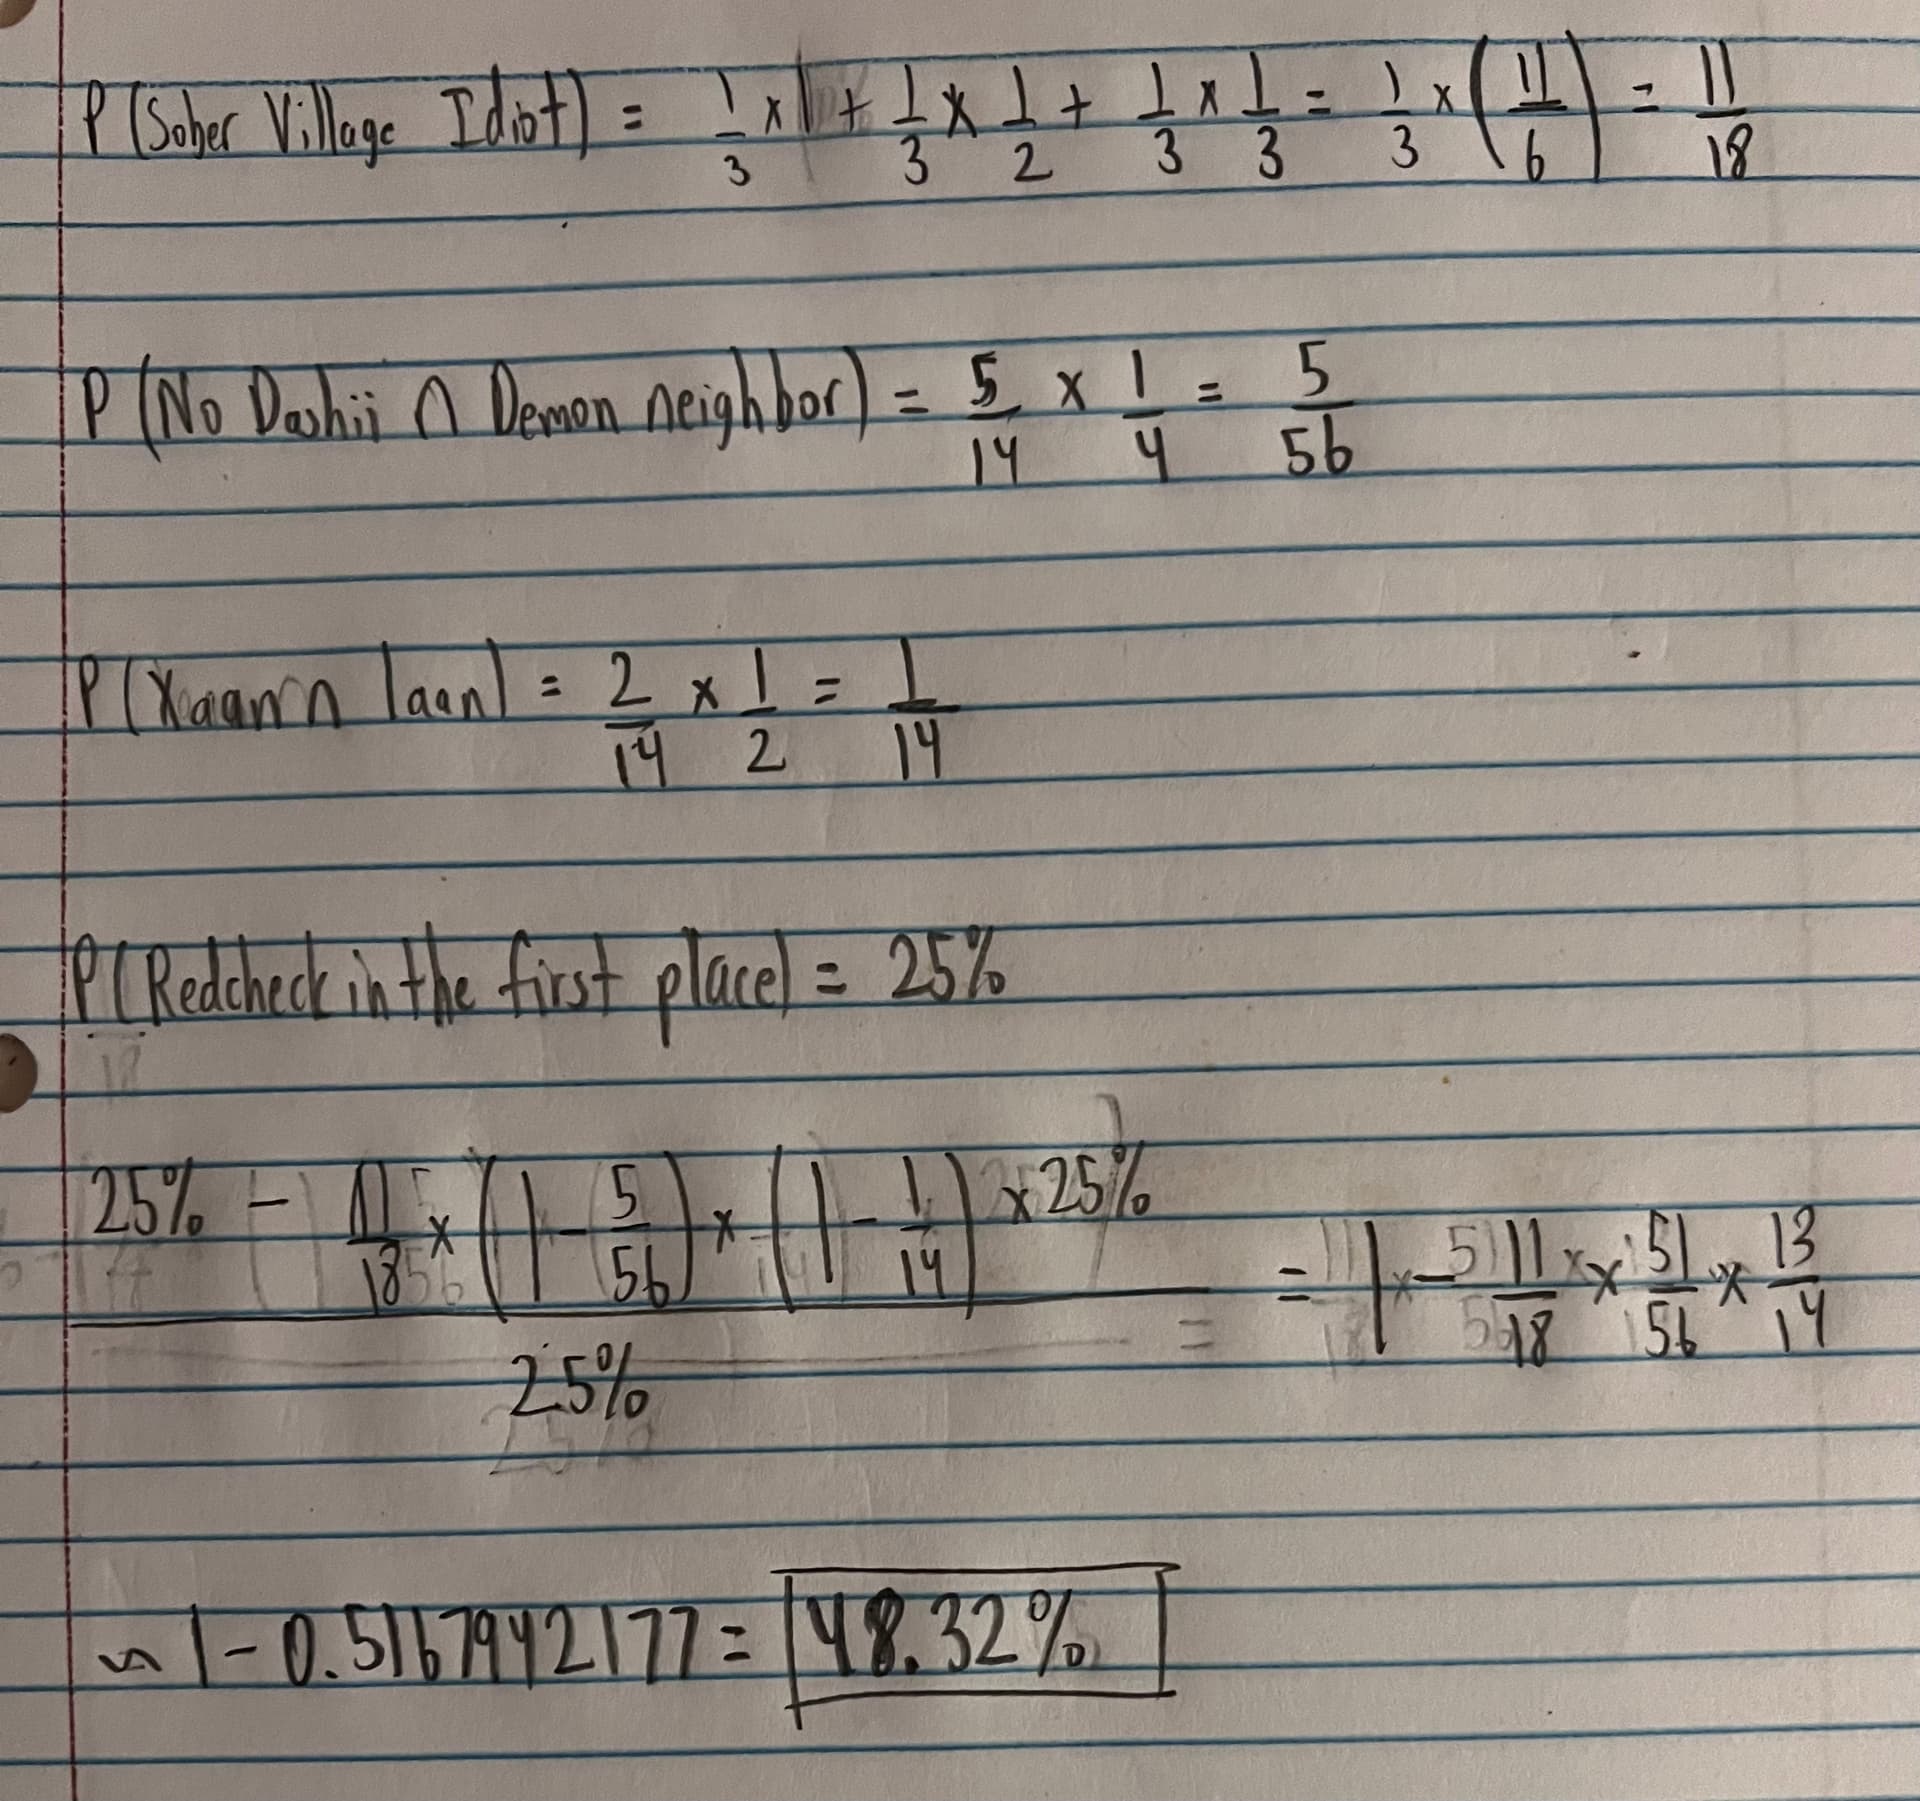 P(Sober Village Idiot) = 1/3 x 1 + 1/3 x 1/2 + 1/3 x 1/3 = 1/3 x (11/6) = 11/18
P(No Dashii ∩ Demon neighbor) = 5/14 x 1/4 = 5/56
P(Xaan ∩ 1aan) = 2/14 x 1/2 = 1/14
P(Redcheck in the first place) = 25%
25% - 11/18 x (1 - 5/56) x (1 - 1/14) x 25%
25%
= 1 - 11/18 x 51/56 x 13/14
≈ 1 - 0.5167942177 = 48.32%